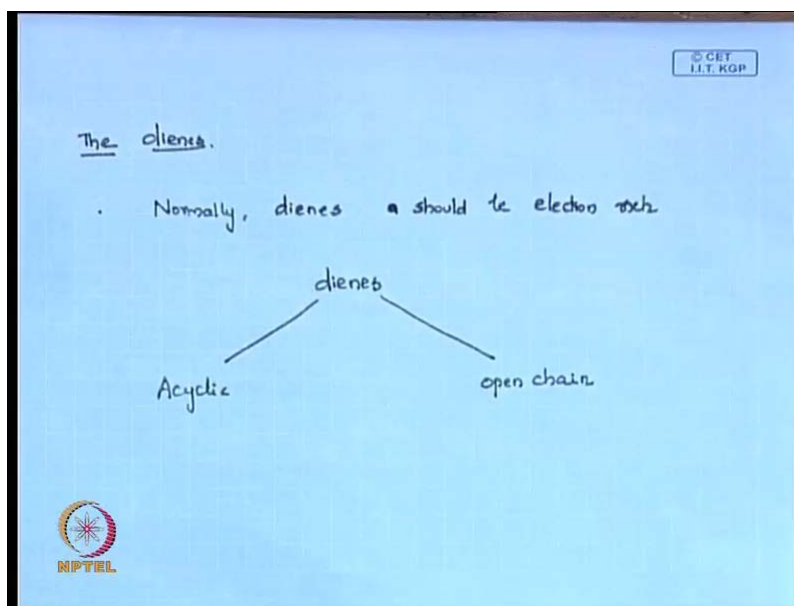 © CET
I.I.T. KGP
The dienes.
Normally, dienes should be electron rich
dienes
Acyclic open chain
NPTEL